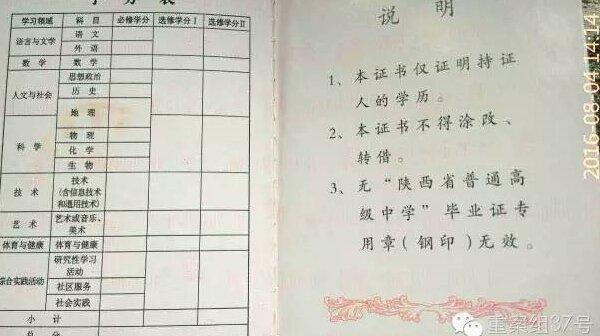 学习领域 科目 必修学分 选修学分Ⅰ 选修学分Ⅱ
语言与文学 语文
外语
数学 数学
人文与社会 思想政治
历史
地理
科学 物理
化学
生物
技术 技术
(含信息技术
和通用技术)
艺术 艺术或音乐、
美术
体育与健康 体育与健康
综合实践活动 研究性学习
活动
社区服务
社会实践
小计
说明
1、本证书仅证明持证
人的学历。
2、本证书不得涂改、
转借。
3、无“陕西省普通高
级中学”毕业证专
用章(钢印)无效。
2016-08-04 14:14
重案组37号